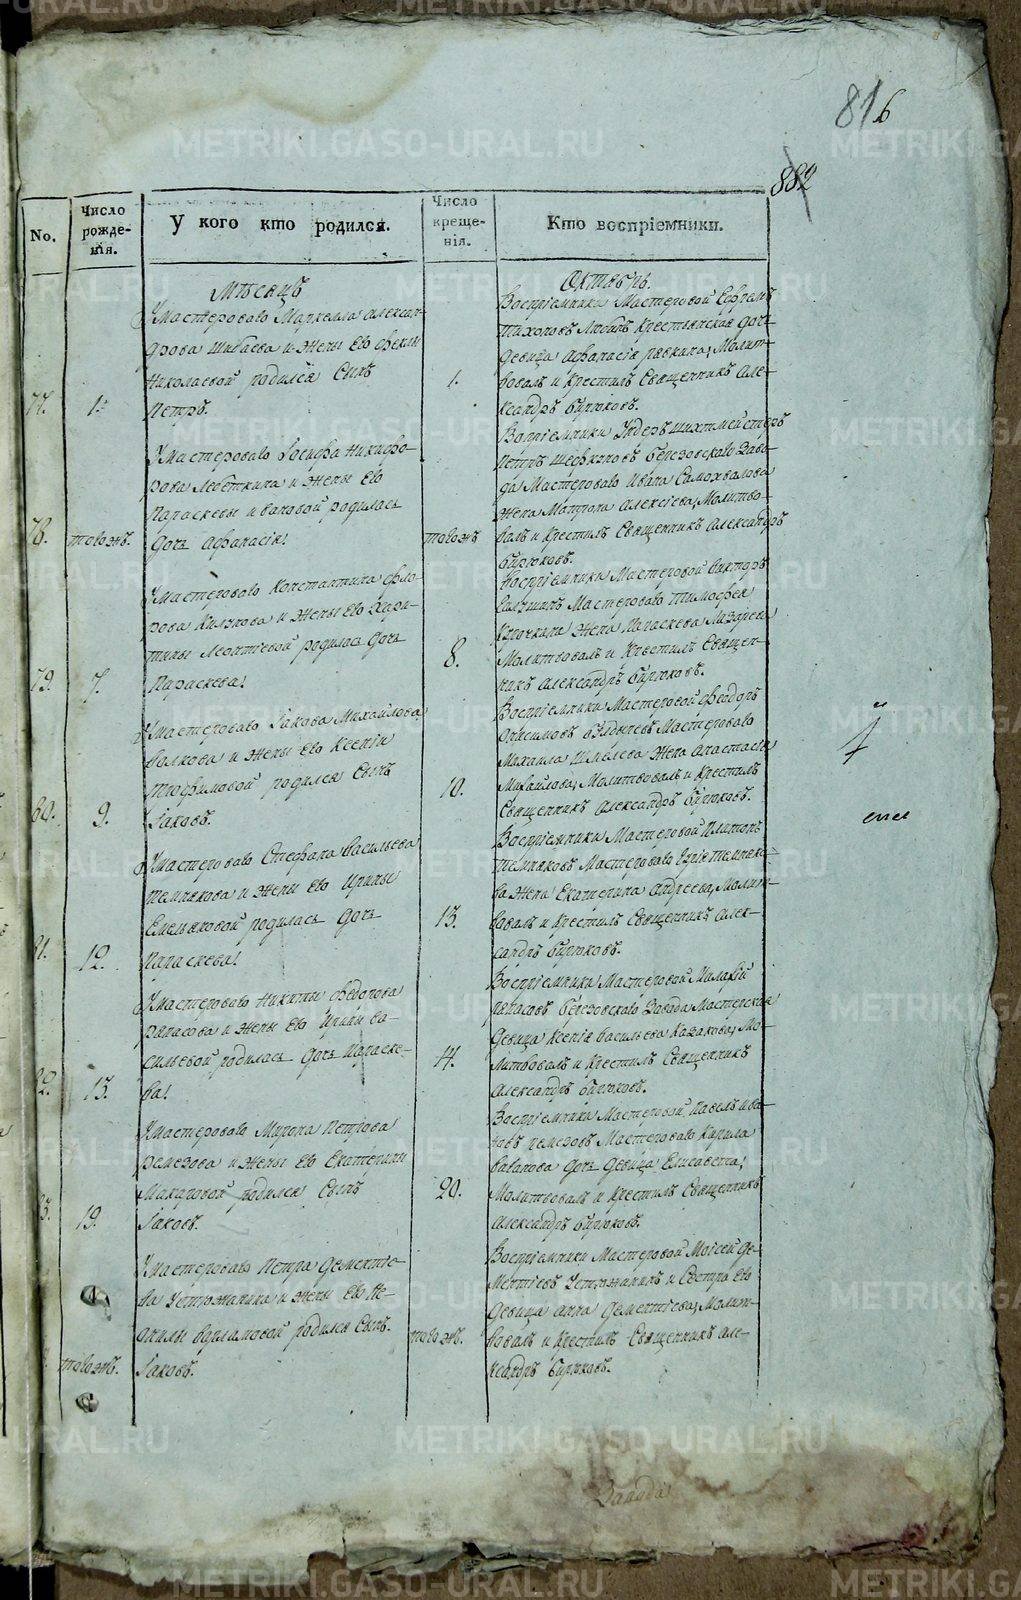 81б
882
No.
Число рожденія.
У кого кто родился.
Число крещенія.
Кто воспріемники.
Мѣсяцъ
Октябрь.
77.
1.
Умастероваго Маркелла Алексан-
дрова Шибаева и жены его Феклы
Николаевой родился Сынъ
Петръ.
1.
Воспріемники Мастеровой Ефрамъ
Тихоновъ Крестьянская дочь
девица Афанасія Молит-
вовалъ и Крестилъ Священникъ Але-
ксандръ Бирюковъ.
78.
тогожъ.
Умастероваго Іосифа Никифо-
рова Лебеткина и жены его
Параскевы Ивановой родилась
дочь Афанасія.
тогожъ
Воспріемники Ундеръ шихтмейстеръ
Петръ Березовскаго Заво-
да Мастероваго Ивана Самохвалова
жена Матрона Алексіева, Молитво-
валъ и Крестилъ Священникъ Александръ
Бирюковъ.
79.
7.
Умастероваго Константина Фло-
рова и жены его Хари-
тины Леонтіевой родилась дочь
Параскева.
8.
Воспріемники Мастеровой Викторъ
Мастероваго Тимофея
Крючкина жена Параскева Лазарева
Молитвовалъ и Крестилъ Священ-
никъ Александръ Бирюковъ.
80.
9.
Умастероваго Іакова Михайлова
Волкова и жены его Ксеніи
Трофимовой родился Сынъ
Іаковъ.
10.
Воспріемники Мастеровой Феодоръ
Онисимовъ Мастероваго
Михаила Шмылева жена Анастасія
Михайлова, Молитвовалъ и Крестилъ
Священникъ Александръ Бирюковъ.
81.
12.
Умастероваго Стефана Васильева
Темнякова и жены его Ирины
Емельяновой родилась дочь
Параскева.
13.
Воспріемники Мастеровой Платонъ
Темняковъ Мастероваго Темняко-
ва жена Екатерина Андреева, Молит-
вовалъ и Крестилъ Священникъ Алек-
сандръ Бирюковъ.
82.
13.
Умастероваго Никиты Федорова
и жены его Ирины Ва-
сильевой родилась дочь Параске-
ва.
14.
Воспріемники Мастеровой
Березовскаго Завода Мастерская
девица Ксенія Васильева Казакова, Мо-
литвовалъ и Крестилъ Священникъ
Александръ Бирюковъ.
83.
19.
Умастероваго Мирона Петрова
Ремезова и жены его Екатерины
Макаровой родился Сынъ
Іаковъ.
20.
Воспріемники Мастеровой Павелъ Ива-
новъ Ремезовъ Мастероваго Кирила
дочь девица Елисавета,
Молитвовалъ и Крестилъ Священникъ
Александръ Бирюковъ.
тогожъ.
Умастероваго Петра Дементіе-
ва Устюжанина и жены его Не-
онилы Варламовой родился Сынъ
Іаковъ.
тогожъ.
Воспріемники Мастеровой Моисей Де-
ментіевъ Устюжанинъ и Сестра его
девица Анна Дементіева, Молит-
вовалъ и Крестилъ Священникъ Але-
ксандръ Бирюковъ.
METRIKI.GASO-URAL.RU